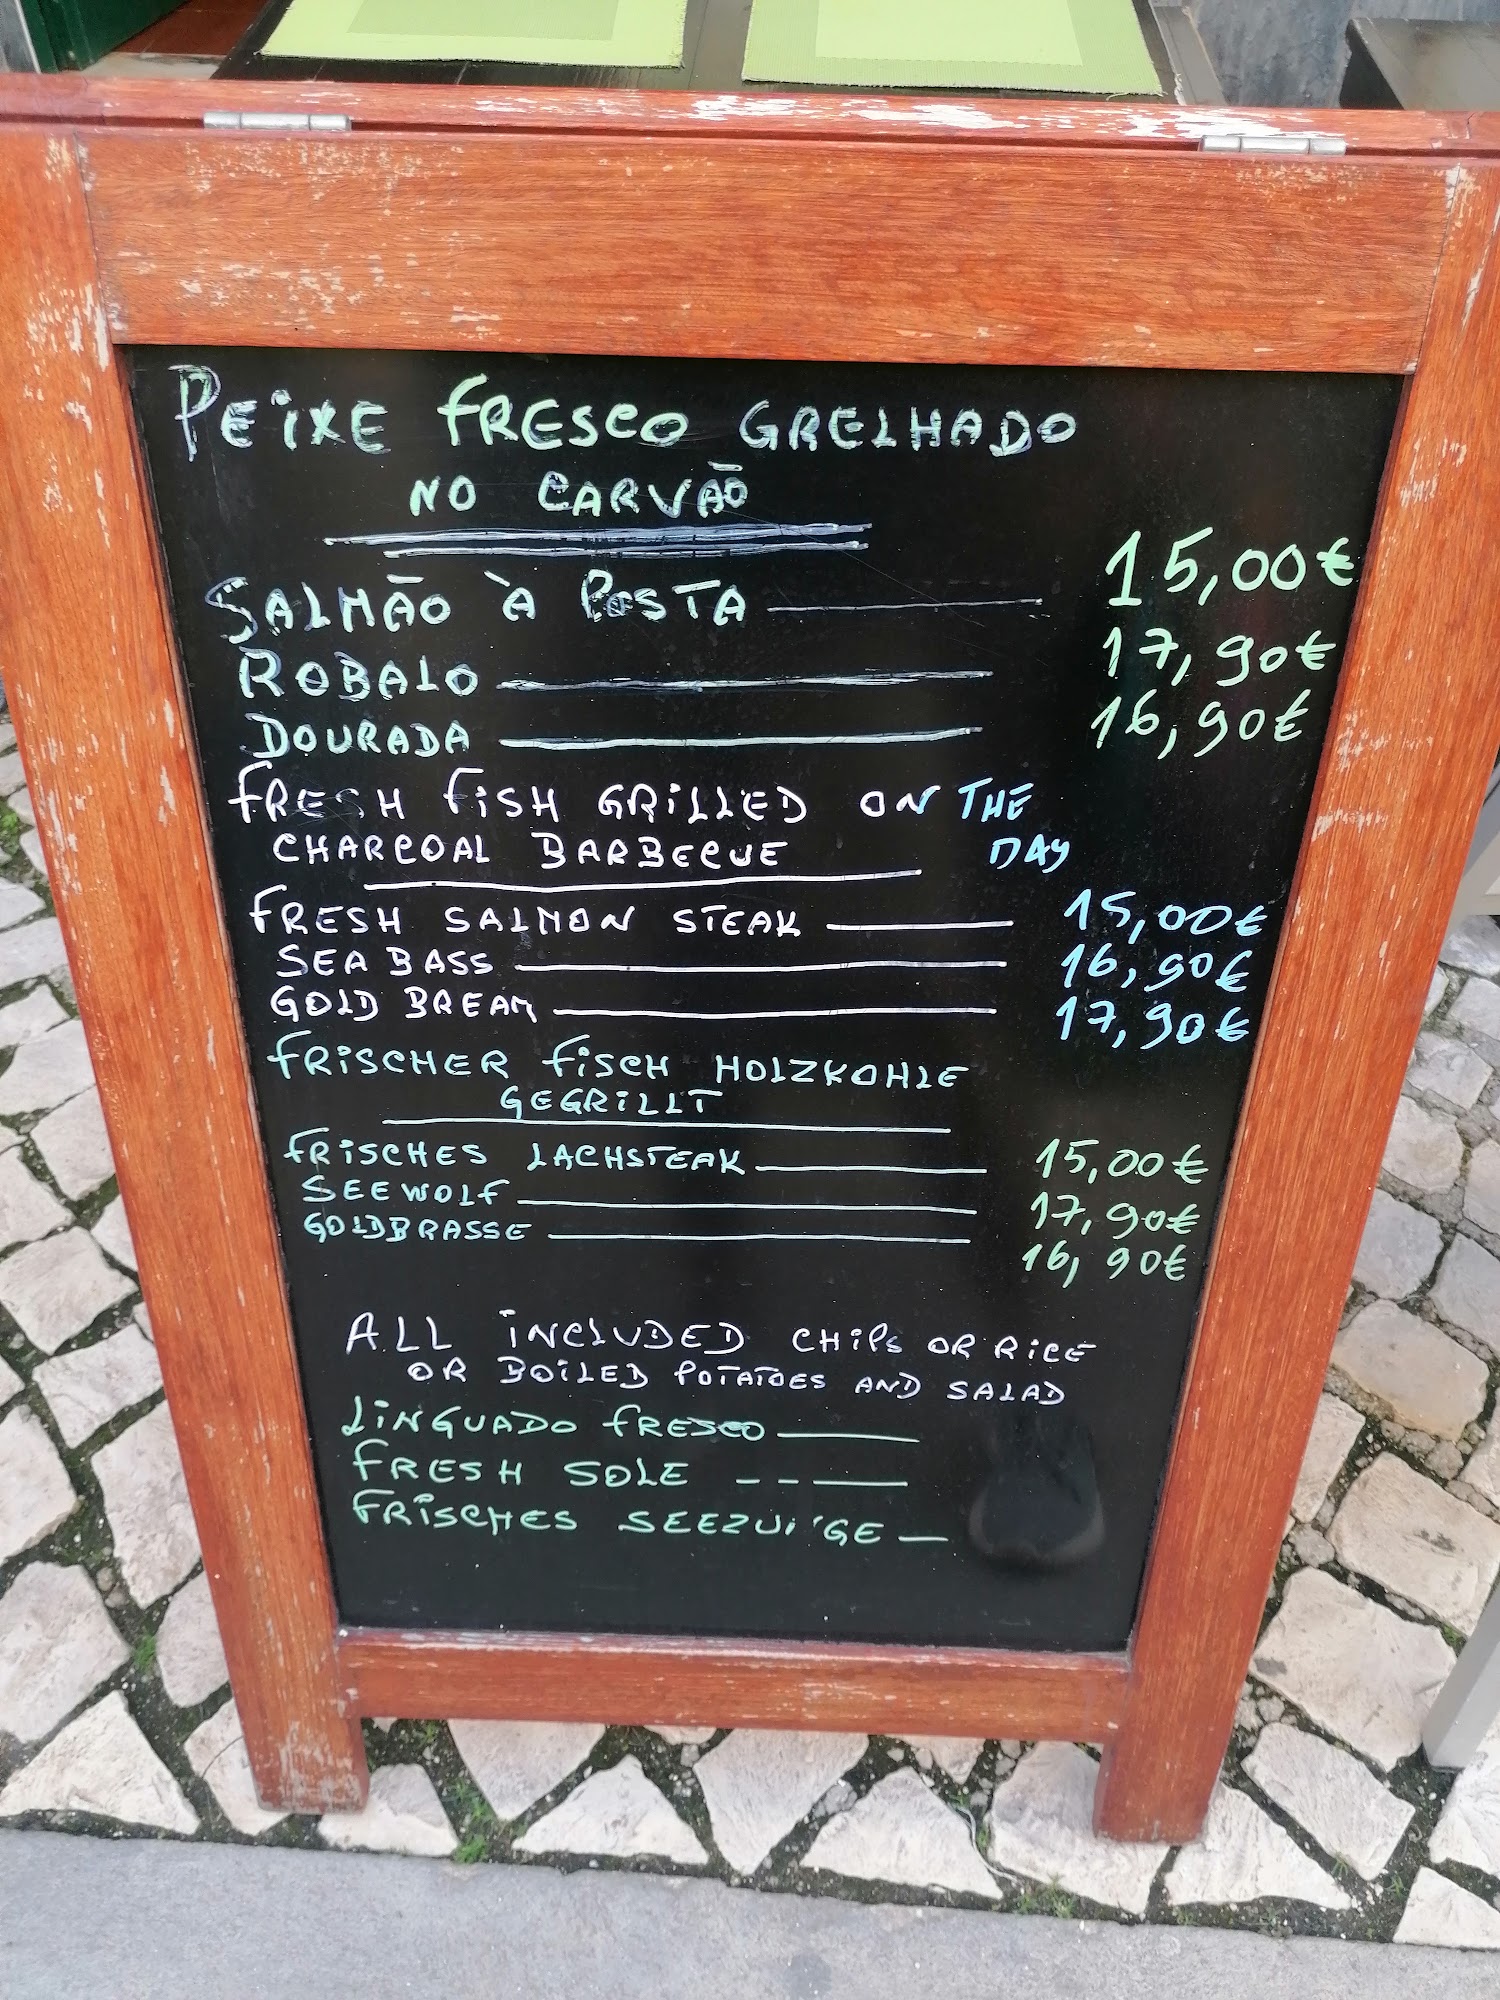 PEIXE FRESCO GRELHADO
NO CARVÃO
SALMÃO À POSTA 15,00€
ROBALO 17,90€
DOURADA 16,90€
FRESH FISH GRILLED ON THE
CHARCOAL BARBECUE DAY
FRESH SALMON STEAK 15,00€
SEA BASS 16,90€
GOLD BREAM 17,90€
FRISCHER FISCH HOLZKOHLE
GEGRILLT
FRISCHES LACHSTEAK 15,00€
SEEWOLF 17,90€
GOLDBRASSE 16,90€
ALL INCLUDED CHIPS OR RICE
OR BOILED POTATOES AND SALAD
LINGUADO FRESCO
FRESH SOLE
FRISCHES SEEZUI'GE